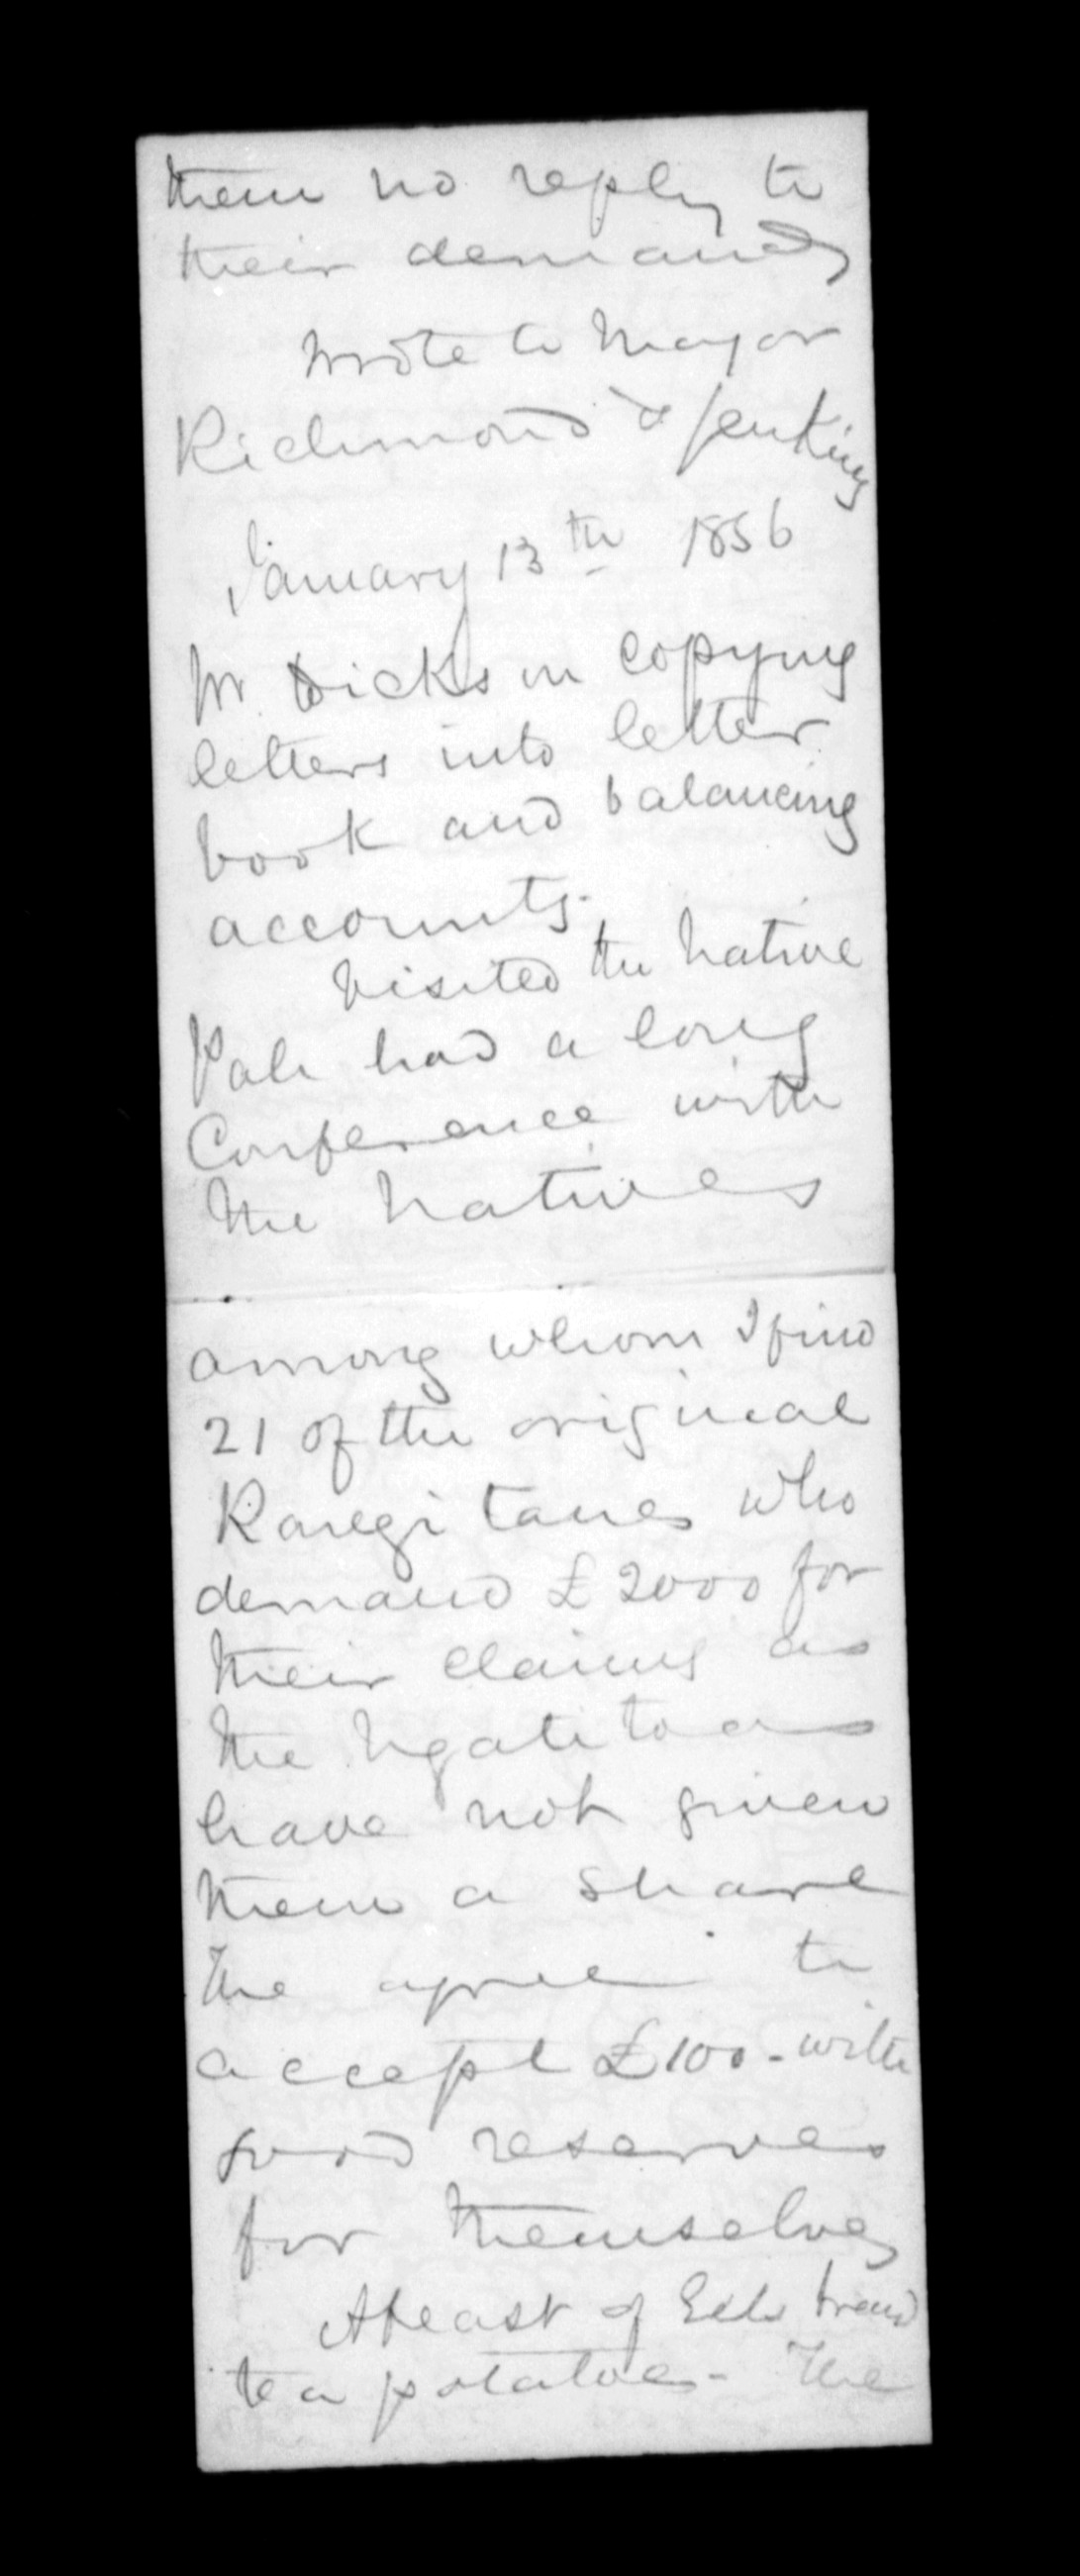 them no reply to
their demands
Wrote to Major
Richmond & Jenkins
January 13th 1856
Mr Dickson copying
letters into letter
book and balancing
accounts.
Visited the Native
Pah had a long
Conference with
the Natives
among whom I find
21 of the original
Rangitanes who
demand £2000 for
their claims as
the Ngatitoas
have not given
them a share
The agree to
accept £100 - with
good reserves
for themselves
A feast of Eels bread
tea potatoes - The